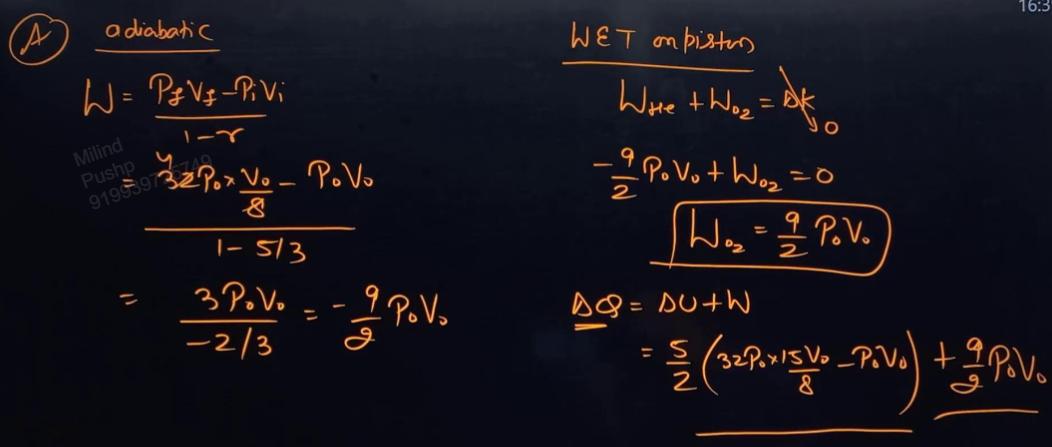 16:3
(A) adiabatic
W = PfVf - PiVi / 1-r
= 32P₀ × V₀/8 - P₀V₀ / 1 - 5/3
4
= 3P₀V₀ / -2/3 = - 9/2 P₀V₀
Milind
Pushp
WET on piston
W_He + W_O₂ = ΔK → 0
- 9/2 P₀V₀ + W_O₂ = 0
W_O₂ = 9/2 P₀V₀
ΔQ = ΔU + W
= 5/2 (32P₀ × 15V₀/8 - P₀V₀) + 9/2 P₀V₀